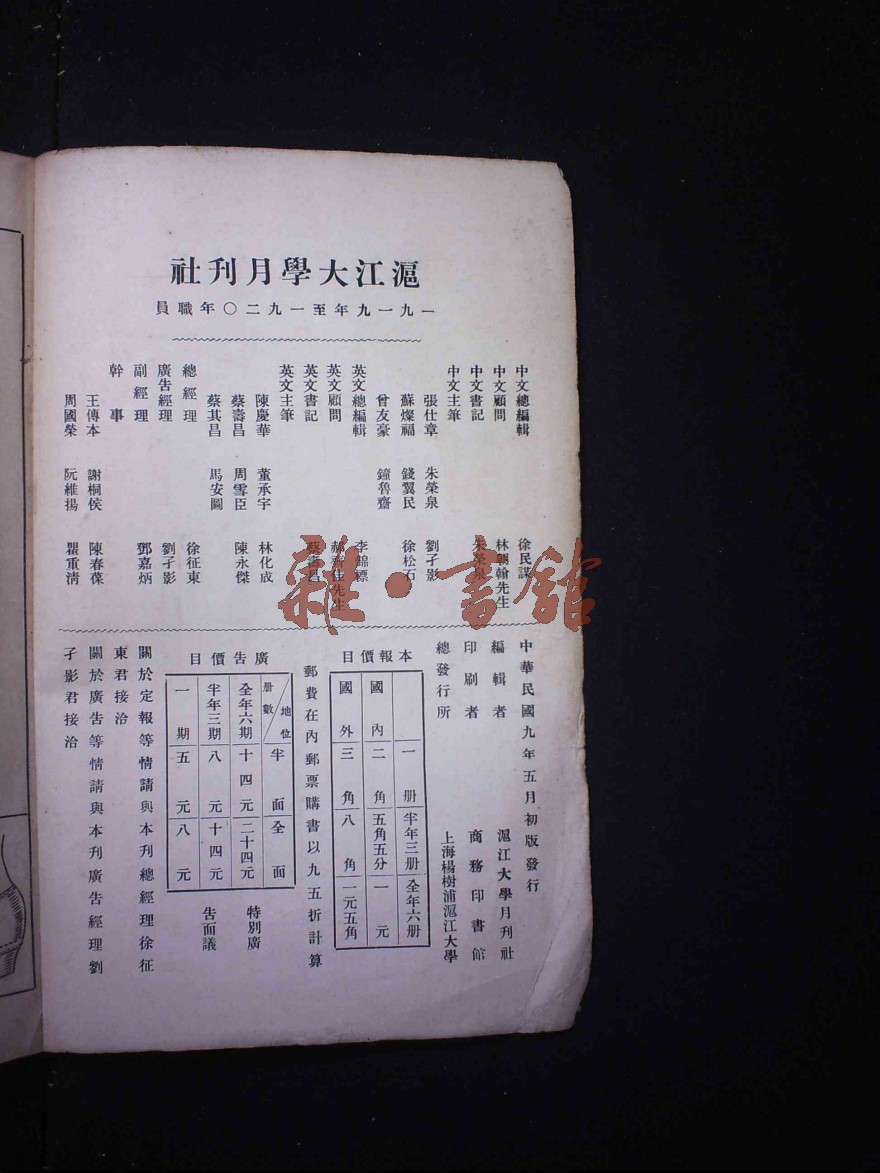 滬江大學月刊社
一九一九年至一九二〇年職員
中文總編輯 徐民謀
中文顧問 林朝翰先生
中文書記 朱榮泉
中文主筆
張仕章 朱榮泉 劉孑影
蘇燦福 錢翼民 徐松石
曾友豪 鐘魯齋
英文總編輯 李錦標
英文顧問 佳先生
英文書記 蔡壽昌
英文主筆
陳慶華 董承宇 林化成
蔡壽昌 周雪臣 陳永傑
蔡其昌 馬安圖
總經理 徐征東
廣告經理 劉孑影
副經理 鄧嘉炳
幹事
王傳本 謝桐侯 陳春葆
周國榮 阮維揚 瞿重清
中華民國九年五月初版發行
編輯者 滬江大學月刊社
印刷者 商務印書館
總發行所 上海楊樹浦滬江大學
本報價目
一册 半年三册 全年六册
國內 二角 五角五分 一元
國外 三角 八角 一元五角
郵費在內郵票購書以九五折計算
廣告價目
地位 册數 半面 全面
全年六期 十四元 二十四元
半年三期 八元 十四元
一期 五元 八元
特別廣
告面議
關於定報等情請與本刊總經理徐征
東君接洽
關於廣告等情請與本刊廣告經理劉
孑影君接洽
雜·書館